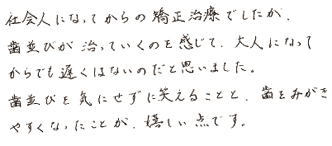 社会人になってからの矯正治療でしたが、
歯並びが治っていくのを感じて、大人になって
からでも遅くはないのだと思いました。
歯並びを気にせずに笑えることと、歯をみがき
やすくなったことが、嬉しい点です。